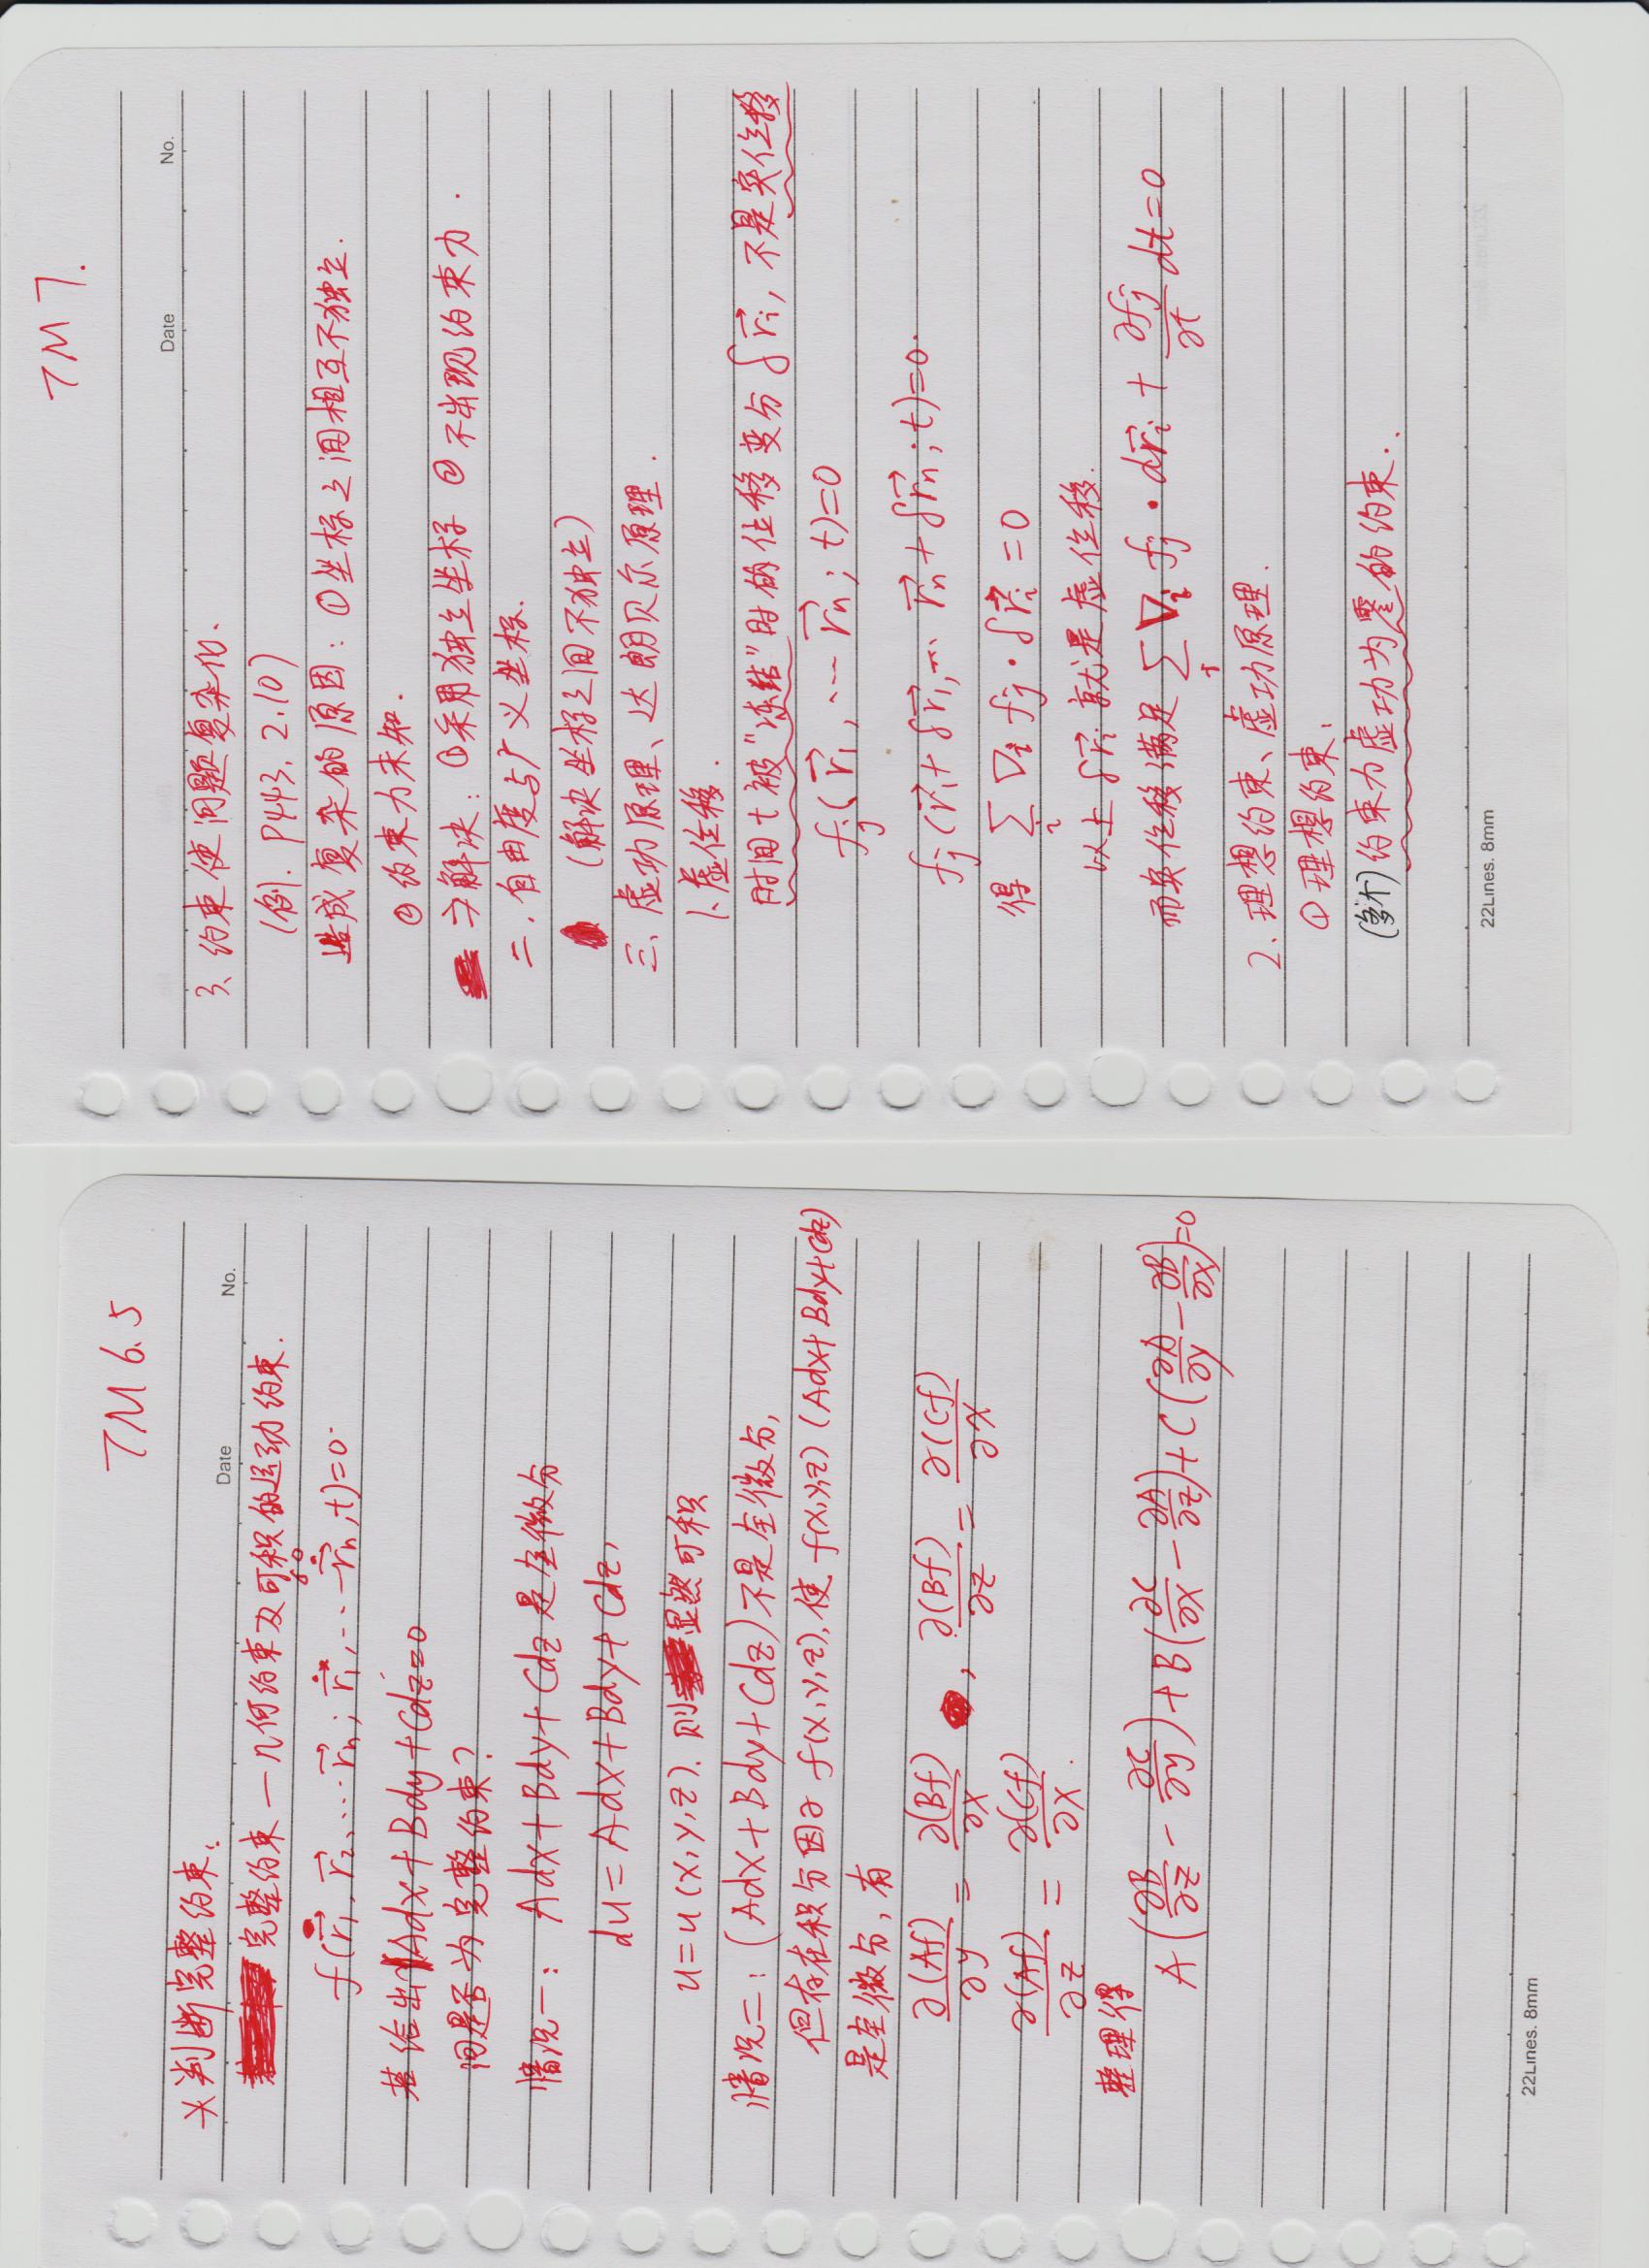 TM 6.5
*判断完整约束.
Date No.
完整约束—几何约束及可积的运动约束.
f(r⃗₁, r⃗₂, … r⃗ₙ; ṙ⃗₁, … ṙ⃗ₙ, t)=0.
若给出 Adx+Bdy+Cdz=0
问是否为完整约束?
情况一: Adx+Bdy+Cdz 是全微分
du=Adx+Bdy+Cdz,
u=u(x,y,z). 则显然可积
情况二: (Adx+Bdy+Cdz)不是全微分,
但存在积分因子 f(x,y,z), 使 f(x,y,z) (Adx+Bdy+Cdz)
是全微分, 有
∂(Af)/∂y = ∂(Bf)/∂x , ∂(Bf)/∂z = ∂(Cf)/∂x
∂(Af)/∂z = ∂(Cf)/∂x .
整理得
A(∂B/∂z - ∂C/∂y)+B(∂C/∂x - ∂A/∂z)+C(∂A/∂y - ∂B/∂x)=0
22Lines. 8mm
TM 7.
Date No.
3、约束使问题复杂化.
(例. P443. 2.10)
造成复杂的原因: ①坐标之间相互不独立.
②约束力未知.
⇒解决: ①采用独立坐标 ②不出现约束力.
二. 自由度与广义坐标.
(解决坐标之间不独立)
三、虚功原理、达朗贝尔原理.
1.虚位移.
时间t被"冻结"时的位移变分 δr⃗ᵢ, 不是实位移
fⱼ(r⃗₁, … r⃗ₙ; t)=0
fⱼ(r⃗₁+δr⃗₁, … r⃗ₙ+δr⃗ₙ; t)=0.
得 ∑ᵢ ∇ᵢ fⱼ · δr⃗ᵢ =0
以上 δr⃗ᵢ 就是虚位移.
而实位移满足 ∑ᵢ ∇ᵢ fⱼ · dr⃗ᵢ + ∂fⱼ/∂t dt=0
2. 理想约束、虚功原理.
①理想约束.
(多个)约束力虚功为零的约束.
22Lines. 8mm